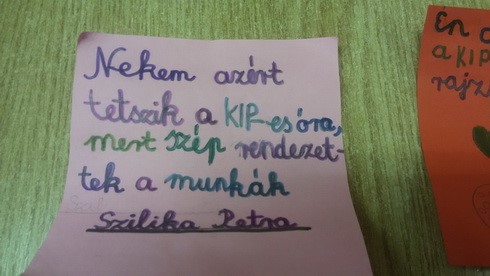 Nekem azért
tetszik a KIP-es óra,
mert szép rendezet-
tek a munkák
Szilika Petra
Én
a KIP
rajz